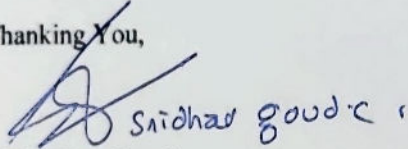 hanking You,
Sridhar goud.c